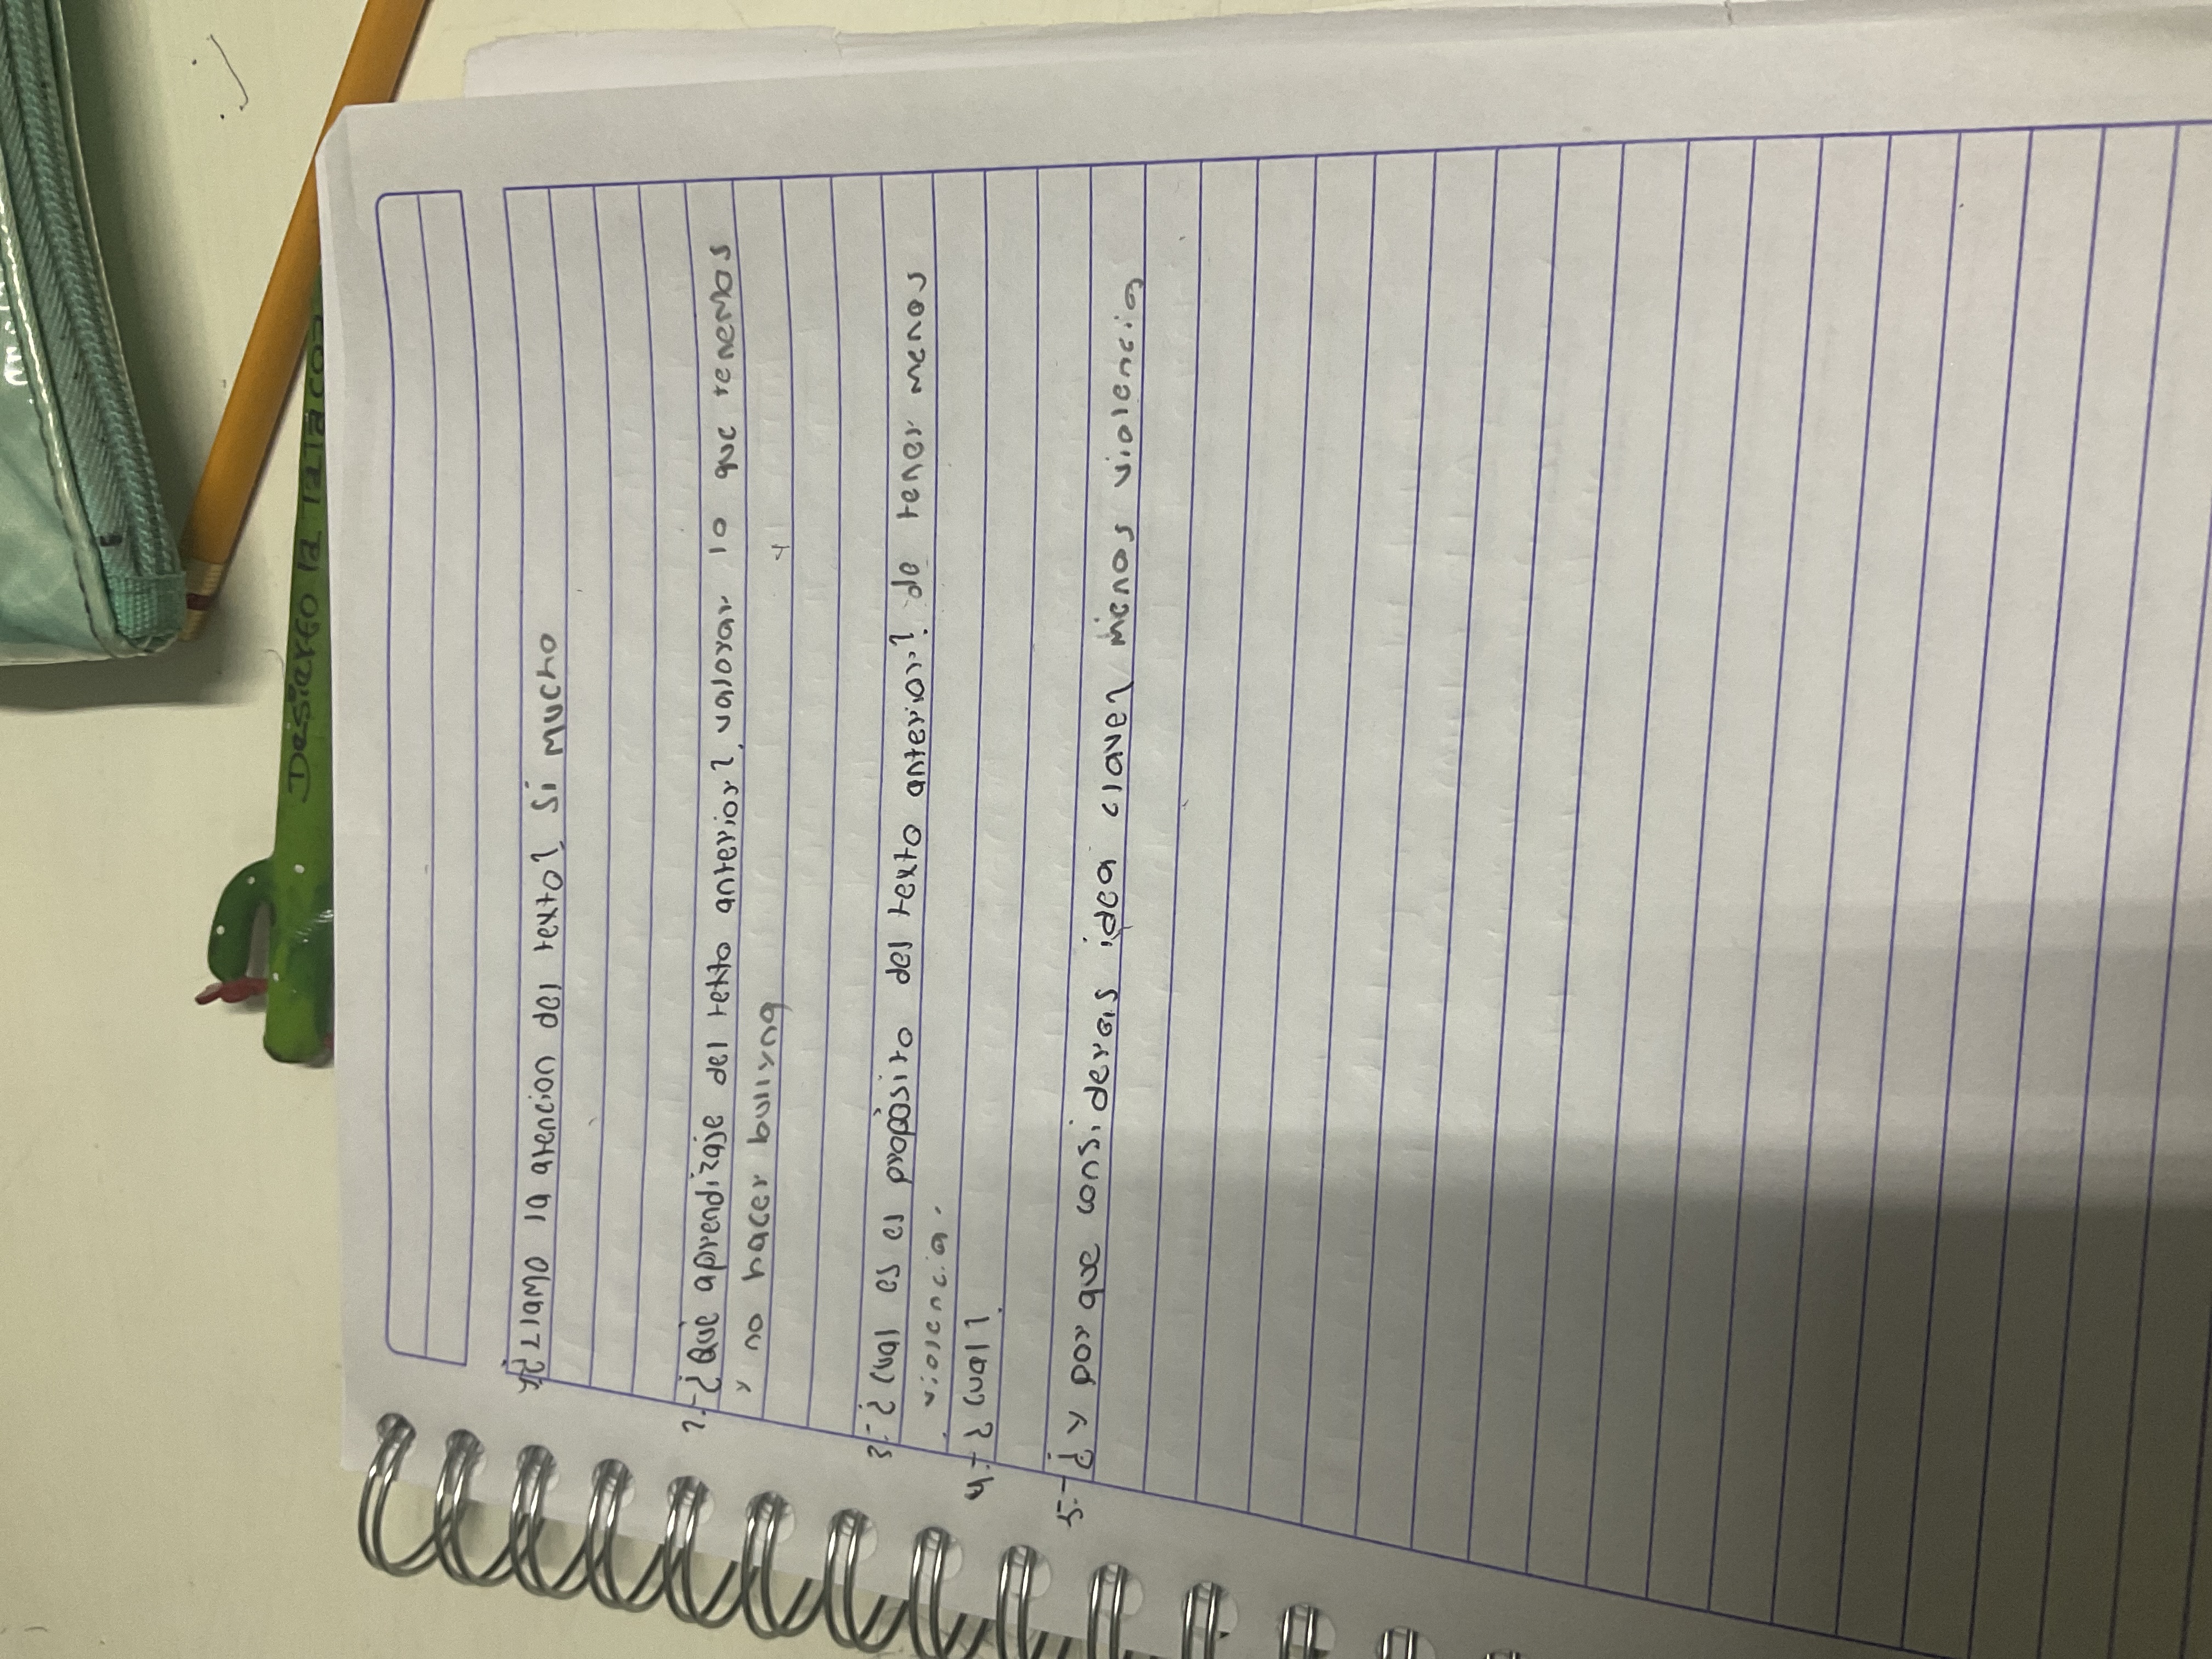 1.-¿Llamo la atencion del texto? Si mucho
2.-¿Que aprendizaje del texto anterior? valorar lo que tenemos
y no hacer bullyng
3.-¿Cual es el propósito del texto anterior? de tener menos
violencia.
4.-¿Cual?
5.-¿y por que consideras idea clave? menos violencia
Desierto la